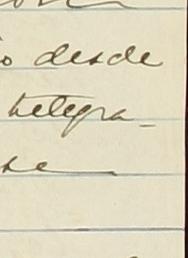 o desde
telegra-
se